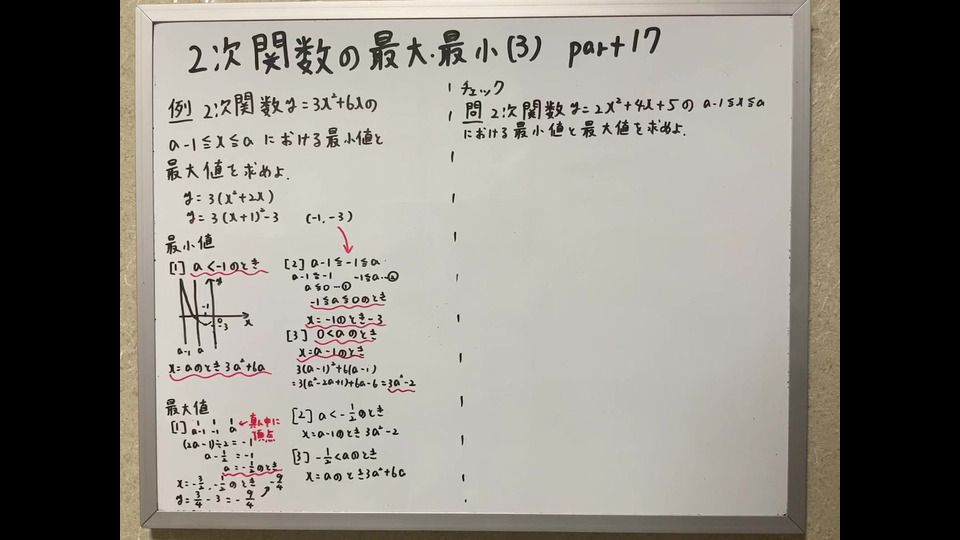 2次関数の最大・最小(3) part17
例 2次関数y=3x²+6xの
a-1≦x≦aにおける最小値と
最大値を求めよ.
y=3(x²+2x)
y=3(x+1)²-3 (-1,-3)
最小値
[1] a<-1のとき
y
-1
0
-3
x
a-1 a
x=aのとき3a²+6a
[2] a-1≦-1≦a
a-1≦-1 -1≦a…②
a≦0…①
-1≦a≦0のとき
x=-1のとき-3
[3] 0<aのとき
x=a-1のとき
3(a-1)²+6(a-1)
=3(a²-2a+1)+6a-6=3a²-2
最大値
[1] a-1 -1 a ←真ん中に頂点
(2a-1)÷2=-1
a-1/2=-1
a=-1/2のとき
x=-3/2,-1/2のとき -9/4
y=3/4-3=-9/4
[2] a<-1/2のとき
x=a-1のとき3a²-2
[3] -1/2<aのとき
x=aのとき3a²+6a
チェック
問 2次関数y=2x²+4x+5のa-1≦x≦a
における最小値と最大値を求めよ.